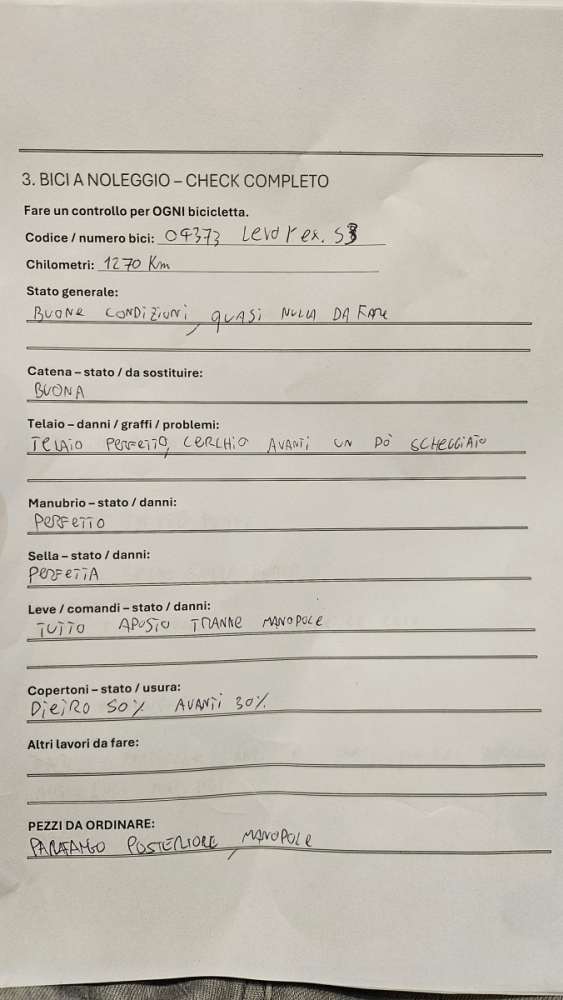 3. BICI A NOLEGGIO – CHECK COMPLETO
Fare un controllo per OGNI bicicletta.
Codice / numero bici: 04373 Levo r ex. S3
Chilometri: 1270 Km
Stato generale:
BUONE CONDIZIONI, QUASI NULLA DA FARE
Catena – stato / da sostituire:
BUONA
Telaio – danni / graffi / problemi:
TELAIO PERFETTO, CERCHIO AVANTI UN PÒ SCHEGGIATO
Manubrio – stato / danni:
PERFETTO
Sella – stato / danni:
PERFETTA
Leve / comandi – stato / danni:
TUTTO APOSTO TRANNE MANOPOLE
Copertoni – stato / usura:
DIEIRO 50% AVANTI 30%
Altri lavori da fare:
PEZZI DA ORDINARE:
PARAFANGO POSTERIORE, MANOPOLE